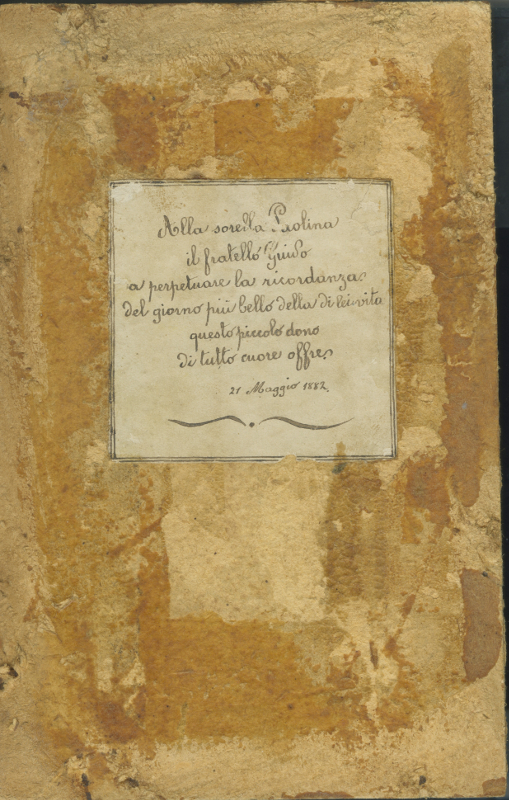 Alla sorella Paolina
il fratello Guido
a perpetuare la ricordanza
del giorno più bello della di lei vita
questo piccolo dono
di tutto cuore offre
21 Maggio 1882.